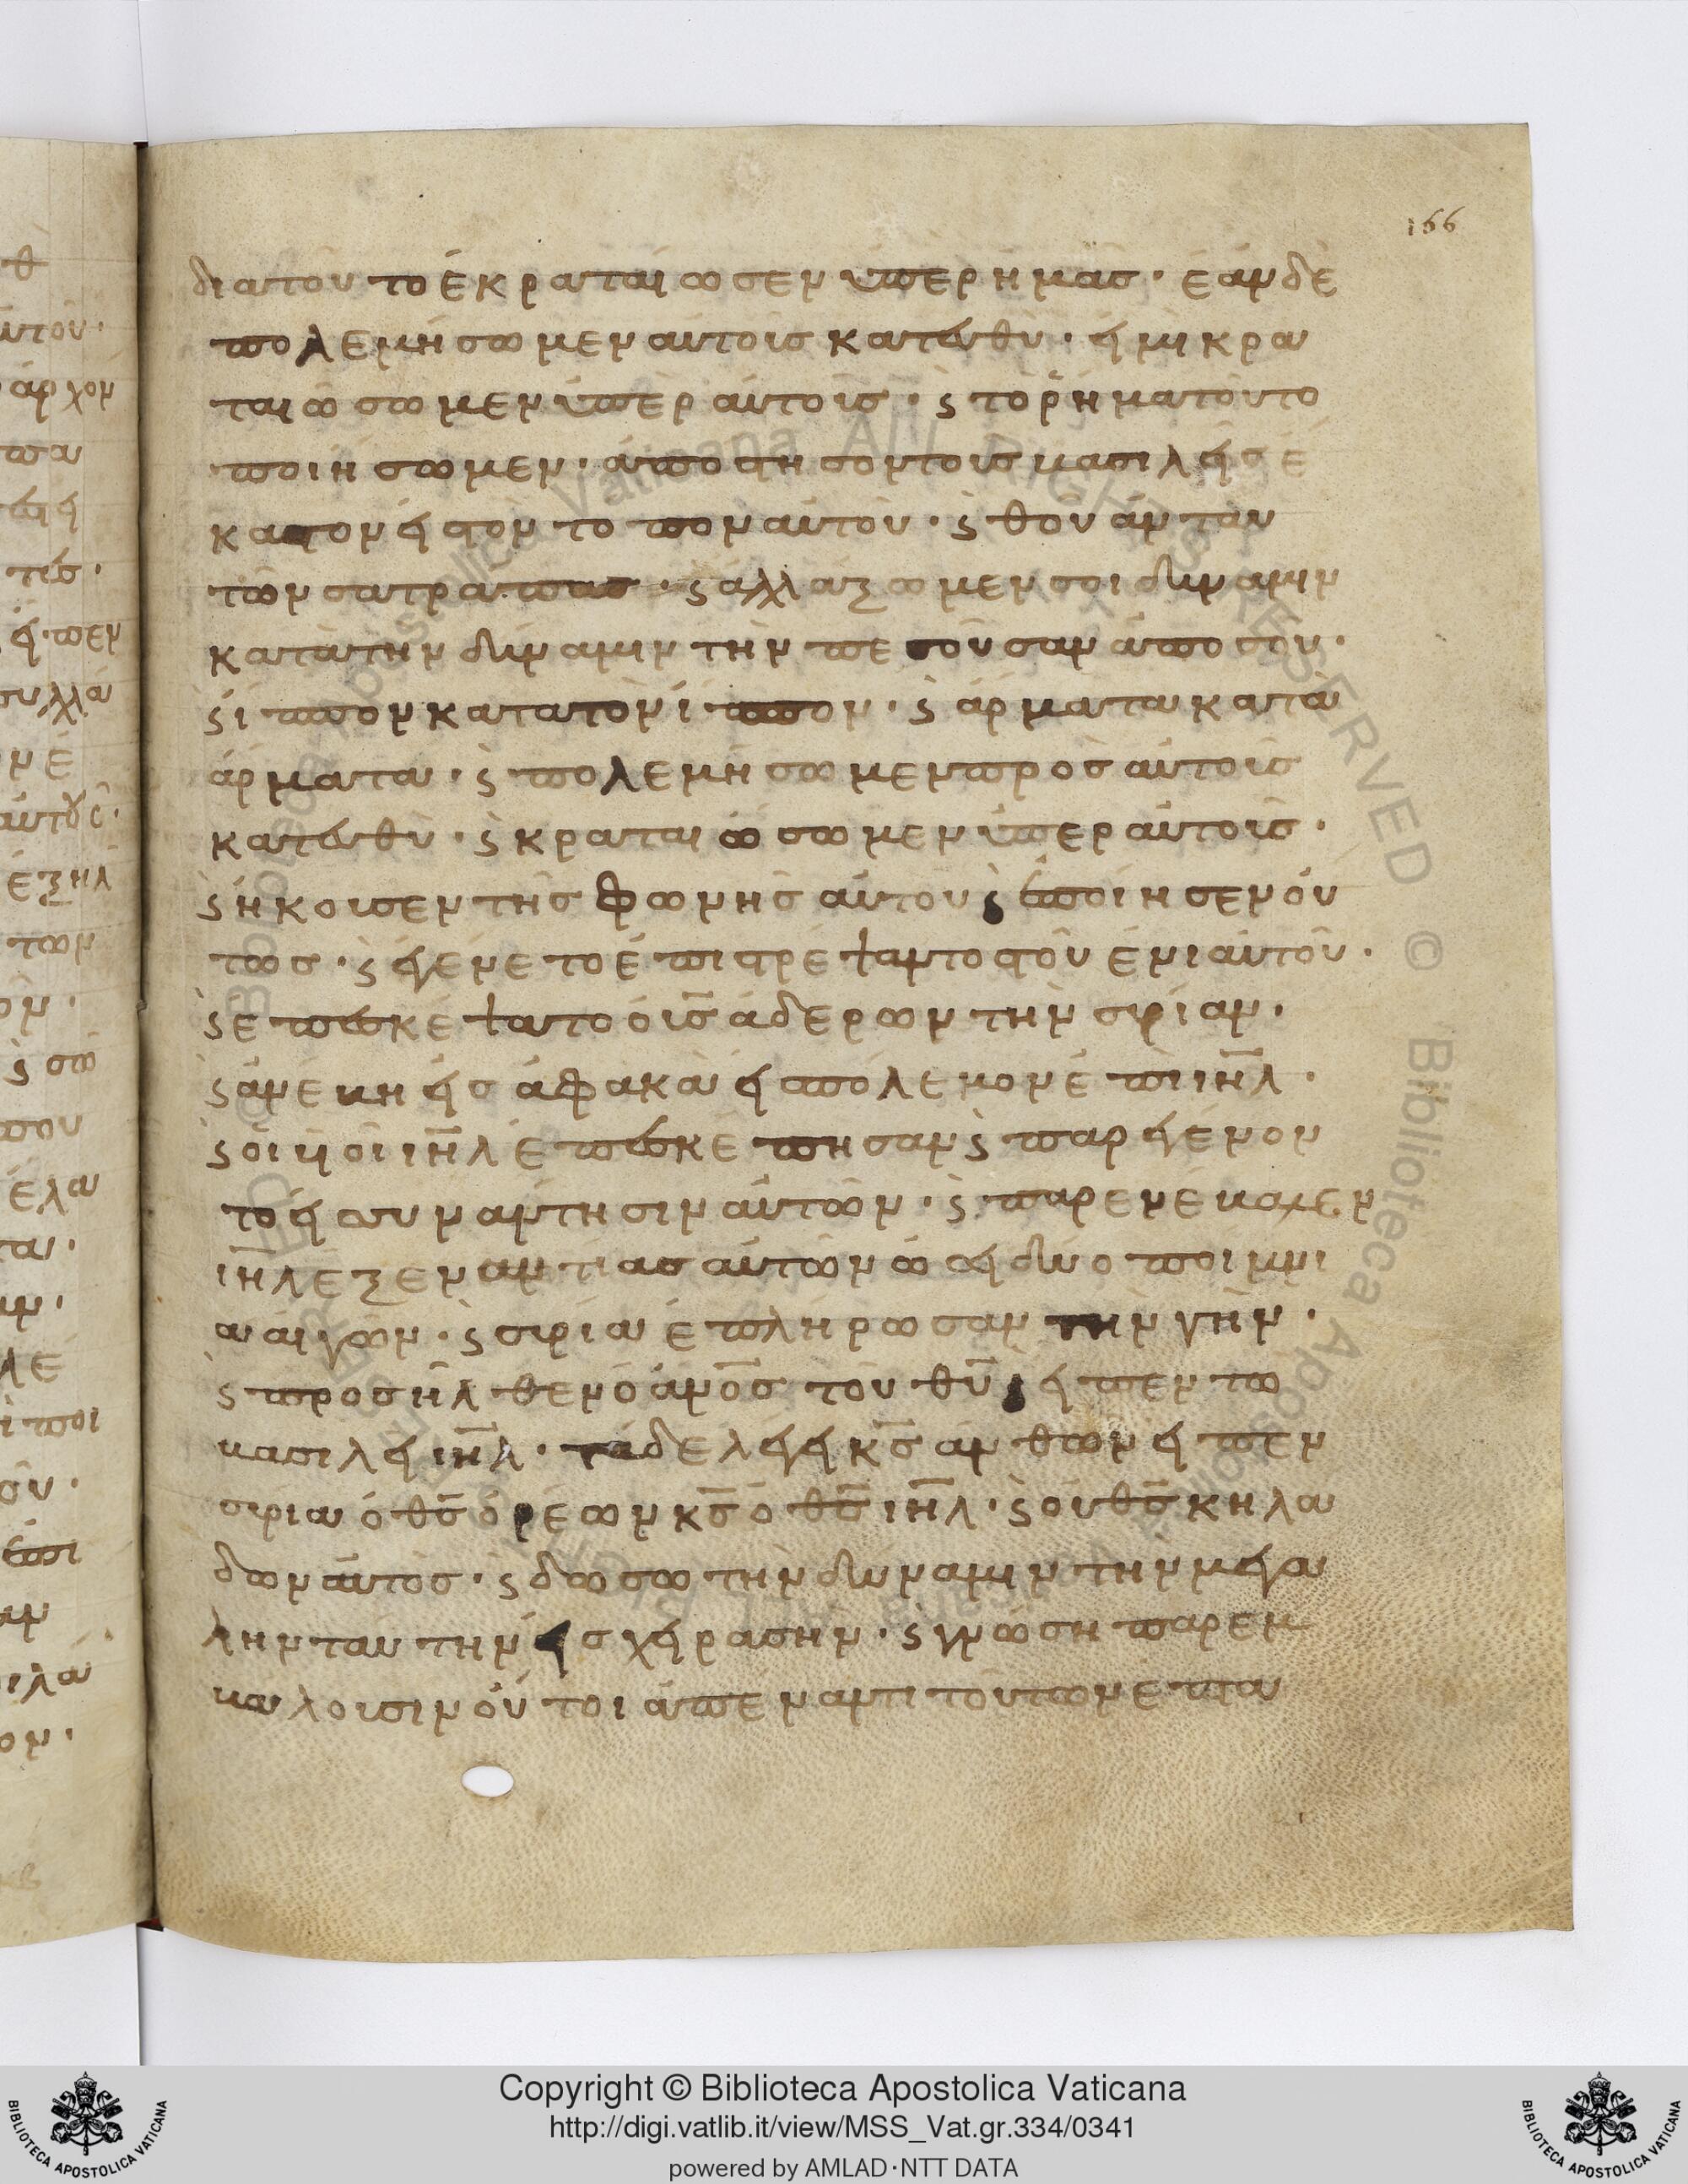 166
διατοῦτο ἐκραταίωσεν ὑπὲρ ἡμᾶς· ἐὰν δὲ
πολεμήσωμεν αὐτοῖς κατευθὺ· εἰ μὴ κρα
ταιώσωμεν ὑπὲρ αὐτοὺς· ϛ τὸ ῥῆμα τοῦτο
ποιήσωμεν· ἀποστησον τοὺς βασιλεῖς ἕ
καστον εἰς τὸν τόπον αὐτοῦ· ϛ θοῦ ἀνταυ
τῶν σατράπας· ϛ ἀλλάξωμεν σοι δύναμιν
κατὰ τὴν δύναμιν τὴν πεσοῦσαν ἀπὸ σοῦ·
ϛ ἵππον κατὰ τὸν ἵππον· ϛ ἅρματα κατὰ
ἅρματα· ϛ πολεμήσωμεν πρὸς αὐτοὺς
κατευθὺ· ϛ κραταιώσωμεν ὑπὲρ αὐτοὺς·
ϛ ἤκουσεν τῆς φωνῆς αὐτοῦ ϛ ἐποίησεν οὕ
τως· ϛ ἐγένετο ἐπιστρέψαντος τοῦ ἐνιαυτοῦ·
ϛ ἐπεσκέψατο ὁ υἱ̅ς̅ ἄδερ ὢν τὴν συρίαν·
ϛ ἀνέβη εἰς ἀφακὰ εἰς πόλεμον ἐπὶ ι̅η̅λ·
ϛ οἱ υἱοὶ ι̅η̅λ ἐπεσκέπησαν ϛ παρεγένον
το εἰς συνάντησιν αὐτῶν· ϛ παρενέβαλεν
ι̅η̅λ ἐξεναντίας αὐτῶν ὡσεὶ δύο ποίμνι
α αἰγῶν· ϛ συρία ἐπλήρωσαν τὴν γῆν·
ϛ προσῆλθεν ὁ α̅ν̅ο̅ς̅ τοῦ θ̅υ̅ ϛ εἶπεν τῷ
βασιλεῖ ι̅η̅λ· τάδε λέγει κ̅ς̅ ἀνθῶν εἶπεν
συρία ὁ θ̅ς̅ ὀρέων κ̅ς̅ ὁ θ̅ς̅ ι̅η̅λ· ϛ οὐ θ̅ς̅ κηλά
δων αὐτὸς· ϛ δώσω τὴν δύναμιν τὴν μεγά
λην ταύτην εἰς χεῖρας σὴν· ϛ γνώση παρεμ
βάλουσιν οὗτοι ἀπέναντι τούτων ἑπτα